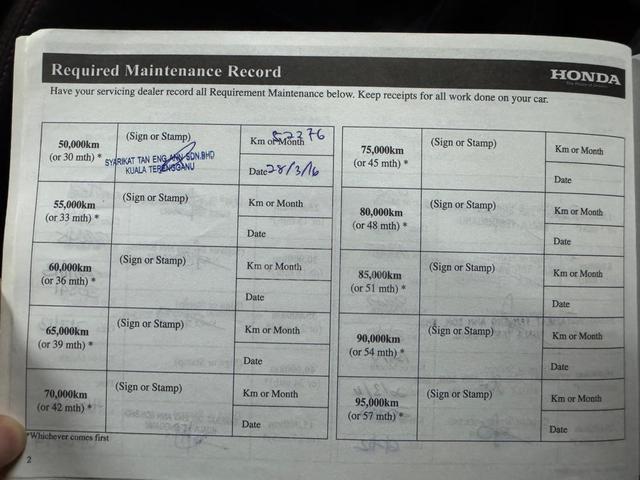 Required Maintenance Record
HONDA
Have your servicing dealer record all Requirement Maintenance below. Keep receipts for all work done on your car.
50,000km
(or 30 mth) *
(Sign or Stamp)
SYARIKAT TAN ENG ANN SDN.BHD
KUALA TERENGGANU
Km or Month
52376
Date 28/3/16
55,000km
(or 33 mth) *
(Sign or Stamp)
Km or Month
Date
60,000km
(or 36 mth) *
(Sign or Stamp)
Km or Month
Date
65,000km
(or 39 mth) *
(Sign or Stamp)
Km or Month
Date
70,000km
(or 42 mth) *
(Sign or Stamp)
Km or Month
Date
75,000km
(or 45 mth) *
(Sign or Stamp)
Km or Month
Date
80,000km
(or 48 mth) *
(Sign or Stamp)
Km or Month
Date
85,000km
(or 51 mth) *
(Sign or Stamp)
Km or Month
Date
90,000km
(or 54 mth) *
(Sign or Stamp)
Km or Month
Date
95,000km
(or 57 mth) *
(Sign or Stamp)
Km or Month
Date
*Whichever comes first
2